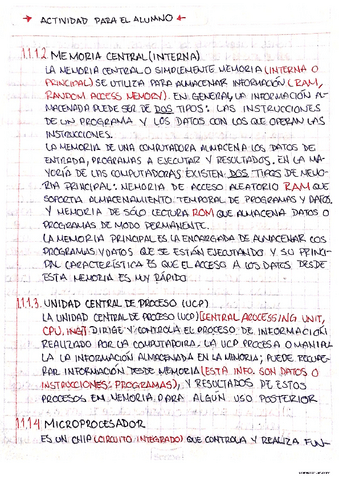 → ACTIVIDAD PARA EL ALUMNO ←
1.1.1.2 MEMORIA CENTRAL (INTERNA)
LA MEMORIA CENTRAL O SIMPLEMENTE MEMORIA (INTERNA O
PRINCIPAL) SE UTILIZA PARA ALMACENAR INFORMACIÓN (RAM,
RANDOM ACCESS MEMORY). EN GENERAL, LA INFORMACIÓN AL-
MACENADA PUEDE SER DE DOS TIPOS: LAS INSTRUCCIONES
DE UN PROGRAMA Y LOS DATOS CON LOS QUE OPERAN LAS
INSTRUCCIONES.
LA MEMORIA DE UNA COMPUTADORA ALMACENA LOS DATOS DE
ENTRADA, PROGRAMAS A EJECUTAR Y RESULTADOS. EN LA MA-
YORÍA DE LAS COMPUTADORAS EXISTEN DOS TIPOS DE MEMO-
RIA PRINCIPAL: MEMORIA DE ACCESO ALEATORIO RAM QUE
SOPORTA ALMACENAMIENTO TEMPORAL DE PROGRAMAS Y DATOS
Y MEMORIA DE SÓLO LECTURA ROM QUE ALMACENA DATOS O
PROGRAMAS DE MODO PERMANENTE.
LA MEMORIA PRINCIPAL ES LA ENCARGADA DE ALMACENAR LOS
PROGRAMAS Y DATOS QUE SE ESTÁN EJECUTANDO Y SU PRINCI-
PAL CARACTERÍSTICA ES QUE EL ACCESO A LOS DATOS DESDE
ESTA MEMORIA ES MUY RÁPIDO.
1.1.1.3. UNIDAD CENTRAL DE PROCESO (UCP)
LA UNIDAD CENTRAL DE PROCESO (UCP) (CENTRAL PROCESSING UNIT,
CPU, ING) DIRIGE Y CONTROLA EL PROCESO DE INFORMACIÓN
REALIZADO POR LA COMPUTADORA. LA UCP PROCESA O MANIPU
LA LA INFORMACIÓN ALMACENADA EN LA MEMORIA; PUEDE RECUPE-
RAR INFORMACIÓN DESDE MEMORIA (ESTA INFO. SON DATOS O
INSTRUCCIONES: PROGRAMAS), Y RESULTADOS DE ESTOS
PROCESOS EN MEMORIA PARA ALGÚN USO POSTERIOR
1.1.1.4 MICROPROCESADOR
ES UN CHIP (CIRCUITO INTEGRADO) QUE CONTROLA Y REALIZA FUN-